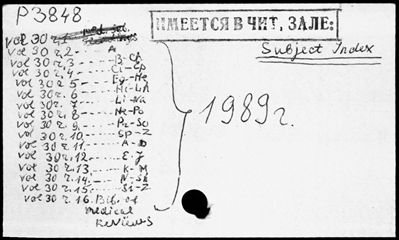 Р3848
ИМЕЕТСЯ В ЧИТ, ЗАЛЕ:
Subject Index
vol 30 г.1
vol 30 г.2 --- A
vol 30 г.3 --- B-Ch
vol 30 г.4 --- Ci-Ep
vol 30 г.5 --- Eq-He
vol 30 г.6 --- Hi-Lh
vol 30 г.7 --- Li-Na
vol 30 г.8 --- Ne-Po
vol 30 г.9 --- Pr-So
vol 30 г.10 --- Sp-Z
vol 30 г.11 --- A-D
vol 30 г.12 --- E-J
vol 30 г.13 --- K-M
vol 30 г.14 --- N-Sh
vol 30 г.15 --- Si-Z
vol 30 г.16 Bib. of
Medical
Reviews
1989 г.